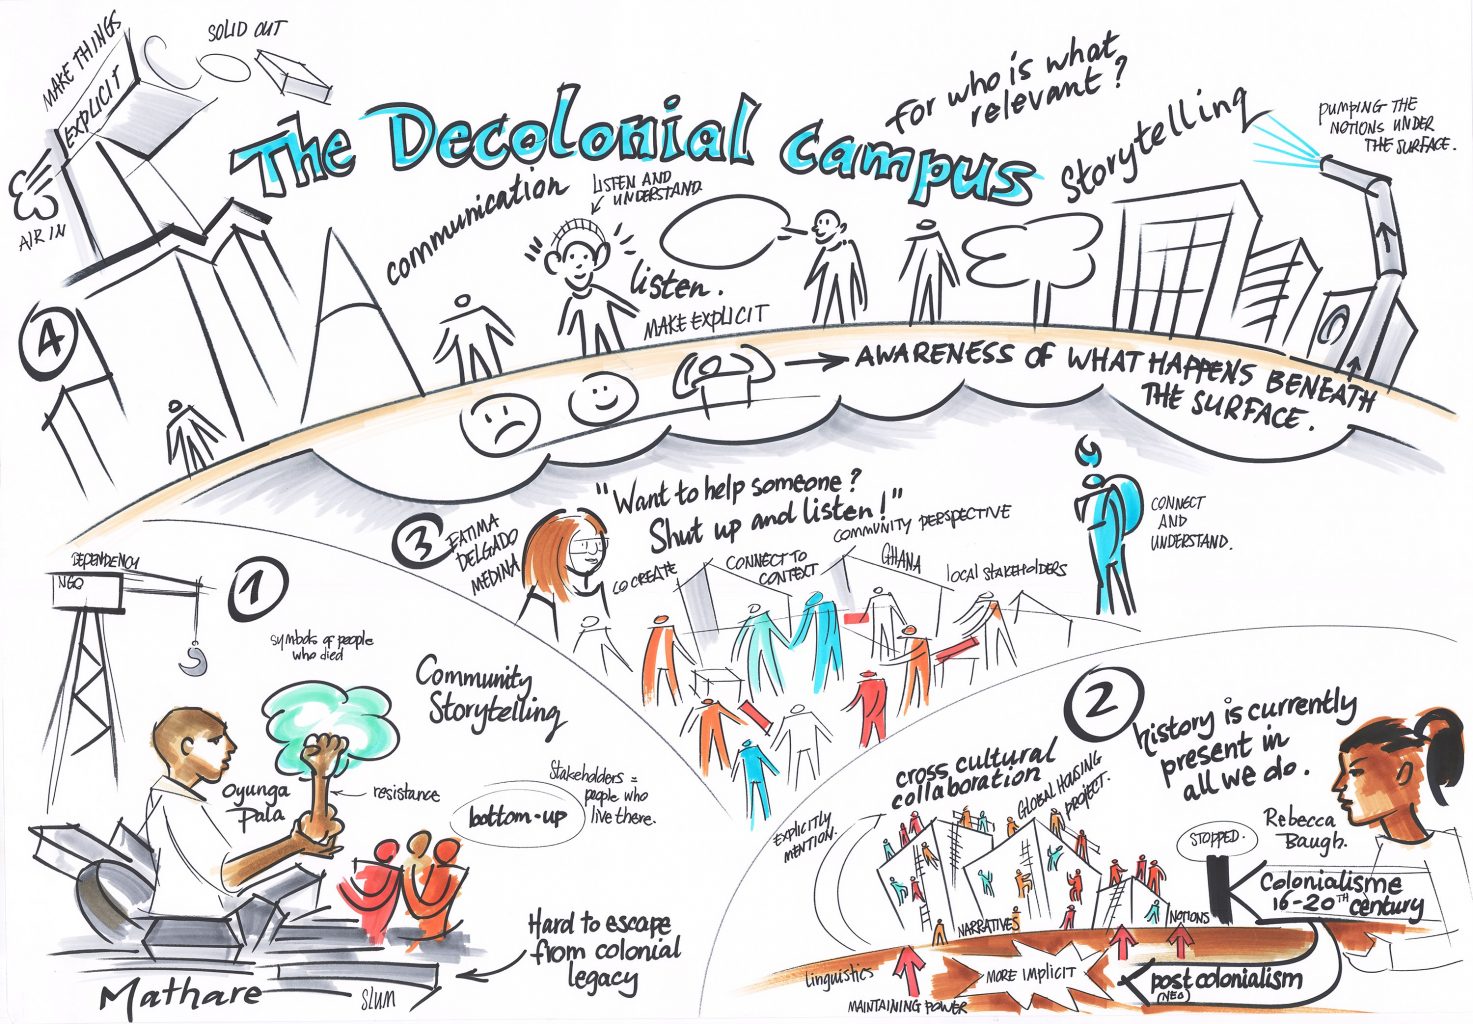 MAKE THINGS
EXPLICIT
SOLID OUT
AIR IN
The Decolonial Campus
for who is what
relevant?
Storytelling
PUMPING THE
NOTIONS UNDER
THE SURFACE.
communication
LISTEN AND
UNDERSTAND
listen.
MAKE EXPLICIT
4
AWARENESS OF WHAT HAPPENS BENEATH
THE SURFACE.
1
DEPENDENCY
NGO
symbols of people
who died
Community
Storytelling
Oyunga
Pala
resistance
bottom-up
Stakeholders =
people who
live there.
Hard to escape
from colonial
legacy
Mathare
SLUM
3
FATIMA
DELGADO
MEDINA
"Want to help someone?
Shut up and listen!"
CO CREATE
CONNECT TO
CONTEXT
COMMUNITY PERSPECTIVE
GHANA
LOCAL STAKEHOLDERS
CONNECT
AND
UNDERSTAND.
2
history is currently
present in
all we do.
Rebecca
Baugh.
cross cultural
collaboration
GLOBAL HOUSING
PROJECT.
EXPLICITLY
MENTION.
STOPPED.
Colonialisme
16-20TH century
NARRATIVES
NOTIONS
linguistics
MAINTAINING POWER
MORE IMPLICIT
postcolonialism
(NEO)